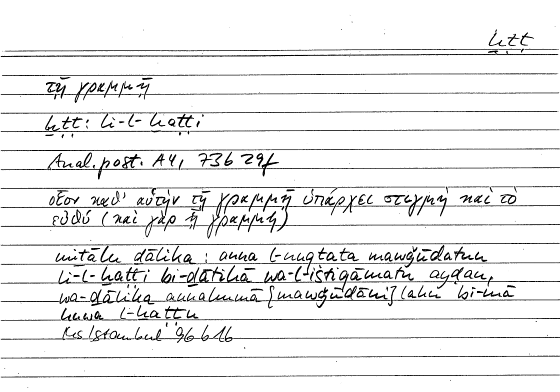 ḫṭṭ
τῇ γραμμῇ
ḫṭṭ: li-l-ḫaṭṭi
Anal. post. A4, 73b 29f
οἷον καθ' αὑτὴν τῇ γραμμῇ ὑπάρχει στιγμὴ καὶ τὸ
εὐθύ (καὶ γὰρ ᾗ γραμμή)
miṯālu ḏālika: anna l-nuqṭata mawǧūdatun
li-l-ḫaṭṭi bi-ḏātihā wa-l-istiqāmatu ayḍan,
wa-ḏālika annahumā {mawǧūdāni} lahu bi-mā
huwa l-ḫaṭṭu
Istanbul 96 b 16